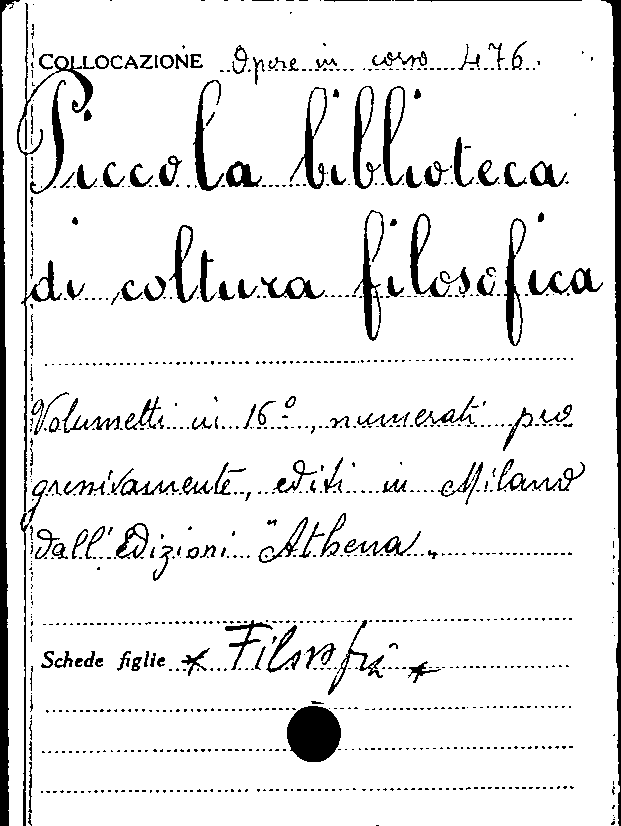 COLLOCAZIONE Opere in corso 476.
Piccola biblioteca
di coltura filosofica
Volumetti in 16º, numerati pro
gressivamente, editi in Milano
dall'Edizioni "Athena„
Schede figlie * Filosofia *